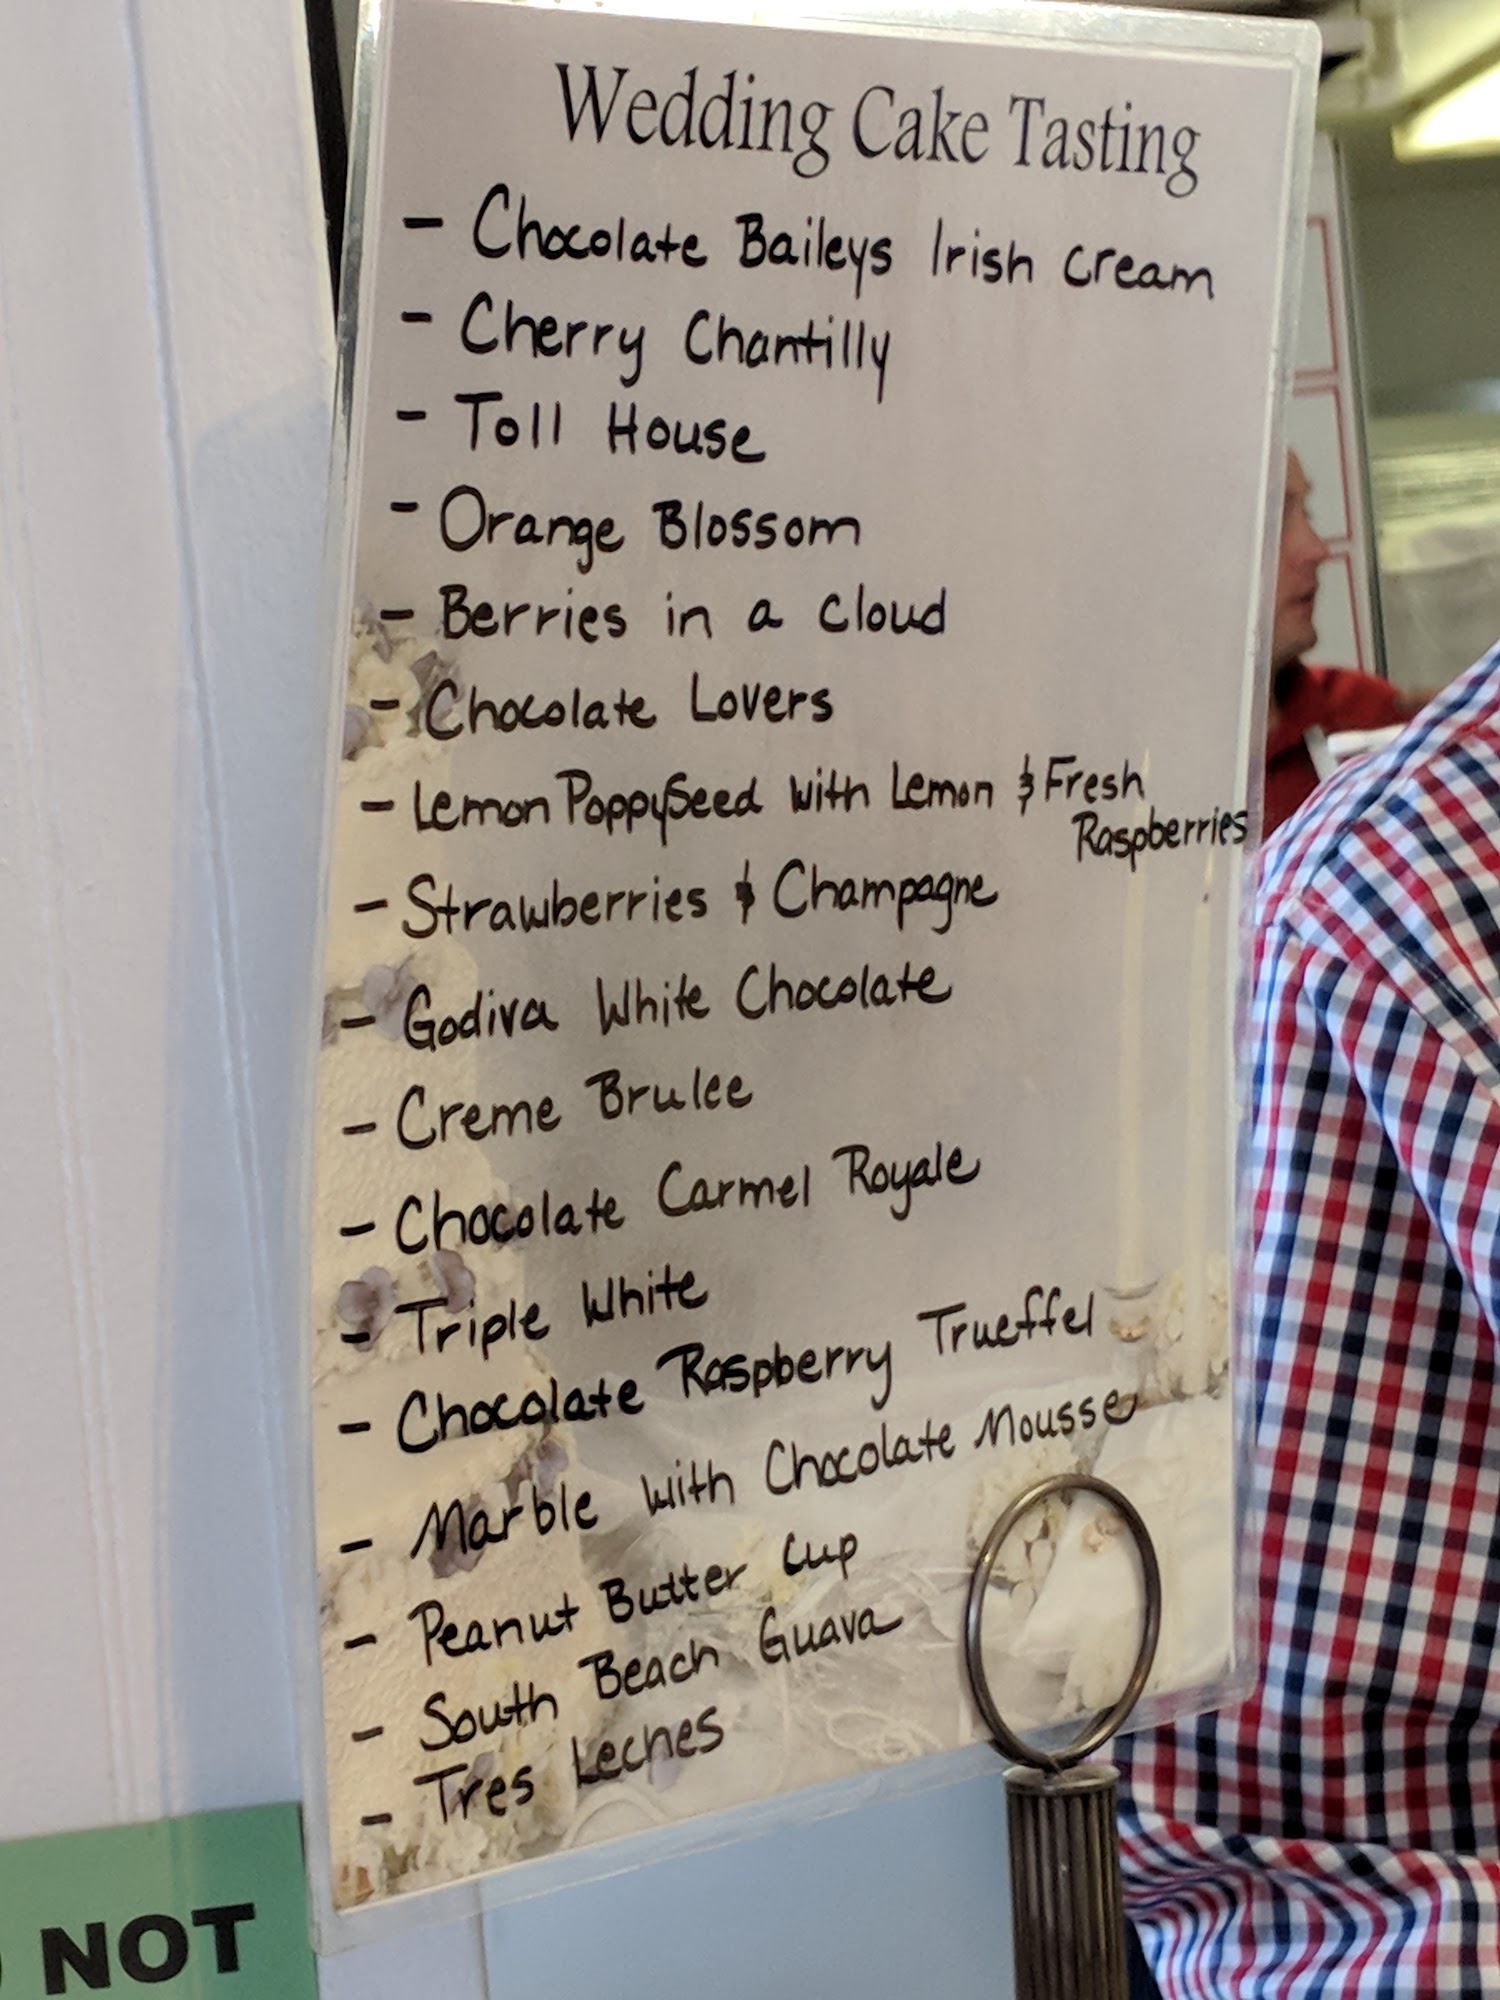 Wedding Cake Tasting
- Chocolate Baileys Irish Cream
- Cherry Chantilly
- Toll House
- Orange Blossom
- Berries in a Cloud
- Chocolate Lovers
- Lemon PoppySeed with Lemon & Fresh
Raspberries
- Strawberries & Champagne
- Godiva White Chocolate
- Creme Brulee
- Chocolate Carmel Royale
- Triple White
- Chocolate Raspberry Trueffel
- Marble with Chocolate Mousse
- Peanut Butter Cup
- South Beach Guava
- Tres Leches
NOT